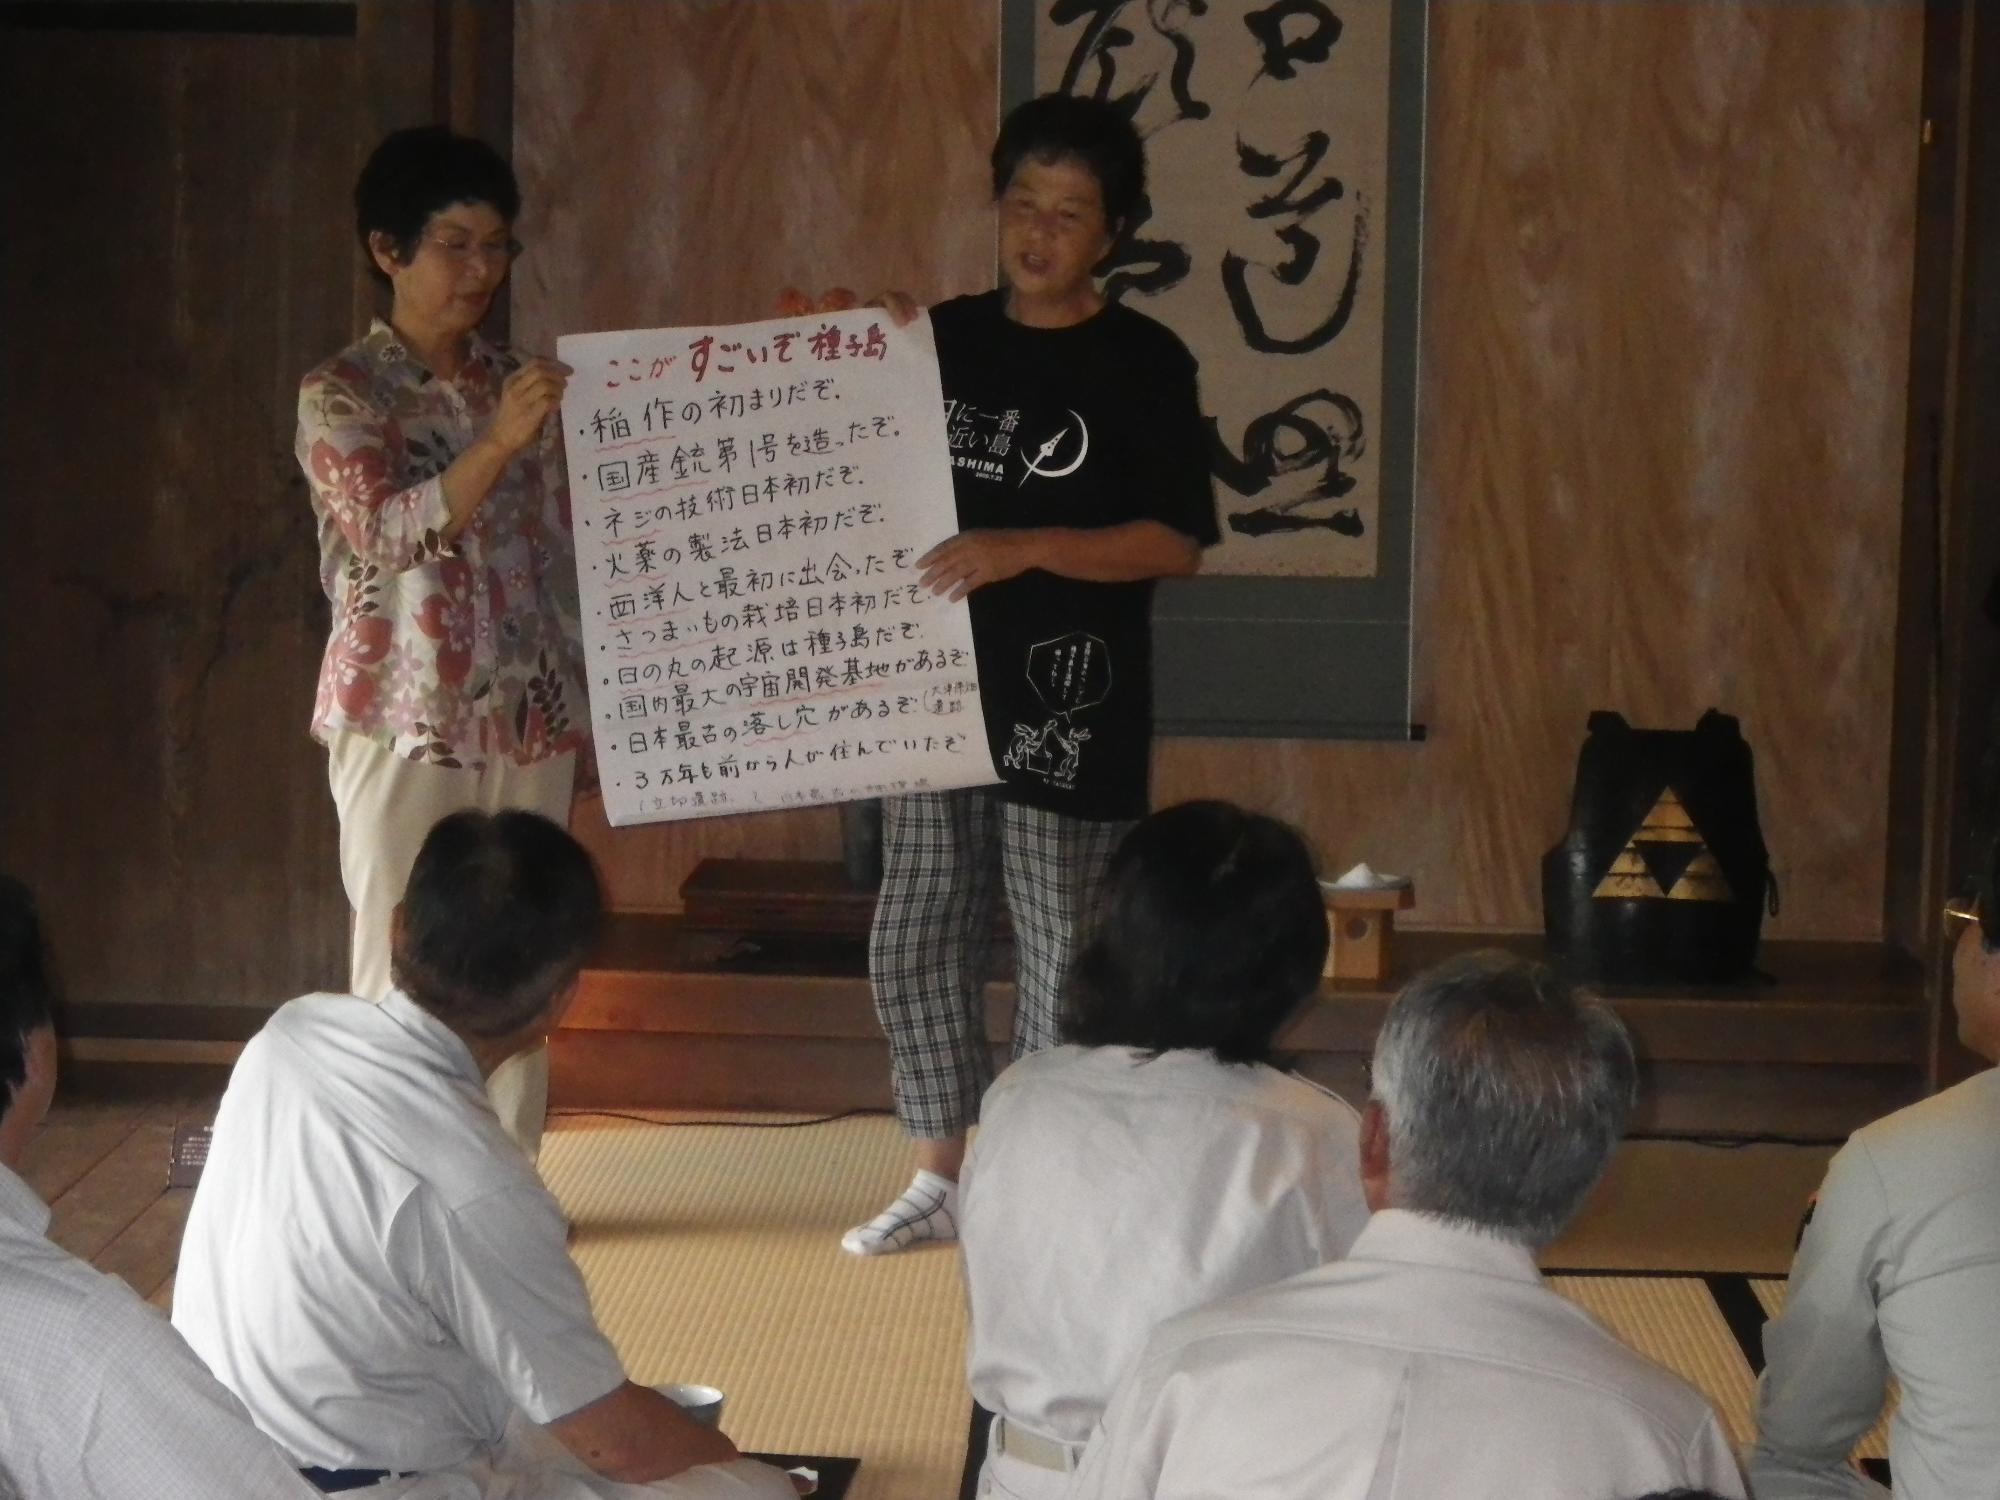 ここがすごいぞ種子島
・稲作の初まりだぞ.
・国産銃第1号を造ったぞ。
・ネジの技術日本初だぞ.
・火薬の製法日本初だぞ.
・西洋人と最初に出会ったぞ
・さつまいもの栽培日本初だぞ.
・日の丸の起源は種子島だぞ.
・国内最大の宇宙開発基地があるぞ
・日本最古の落し穴があるぞ(大津保畑
遺跡
・3万年も前から人が住んでいたぞ
(立切遺跡
に一番
近い島
ASHIMA
2009.7.22